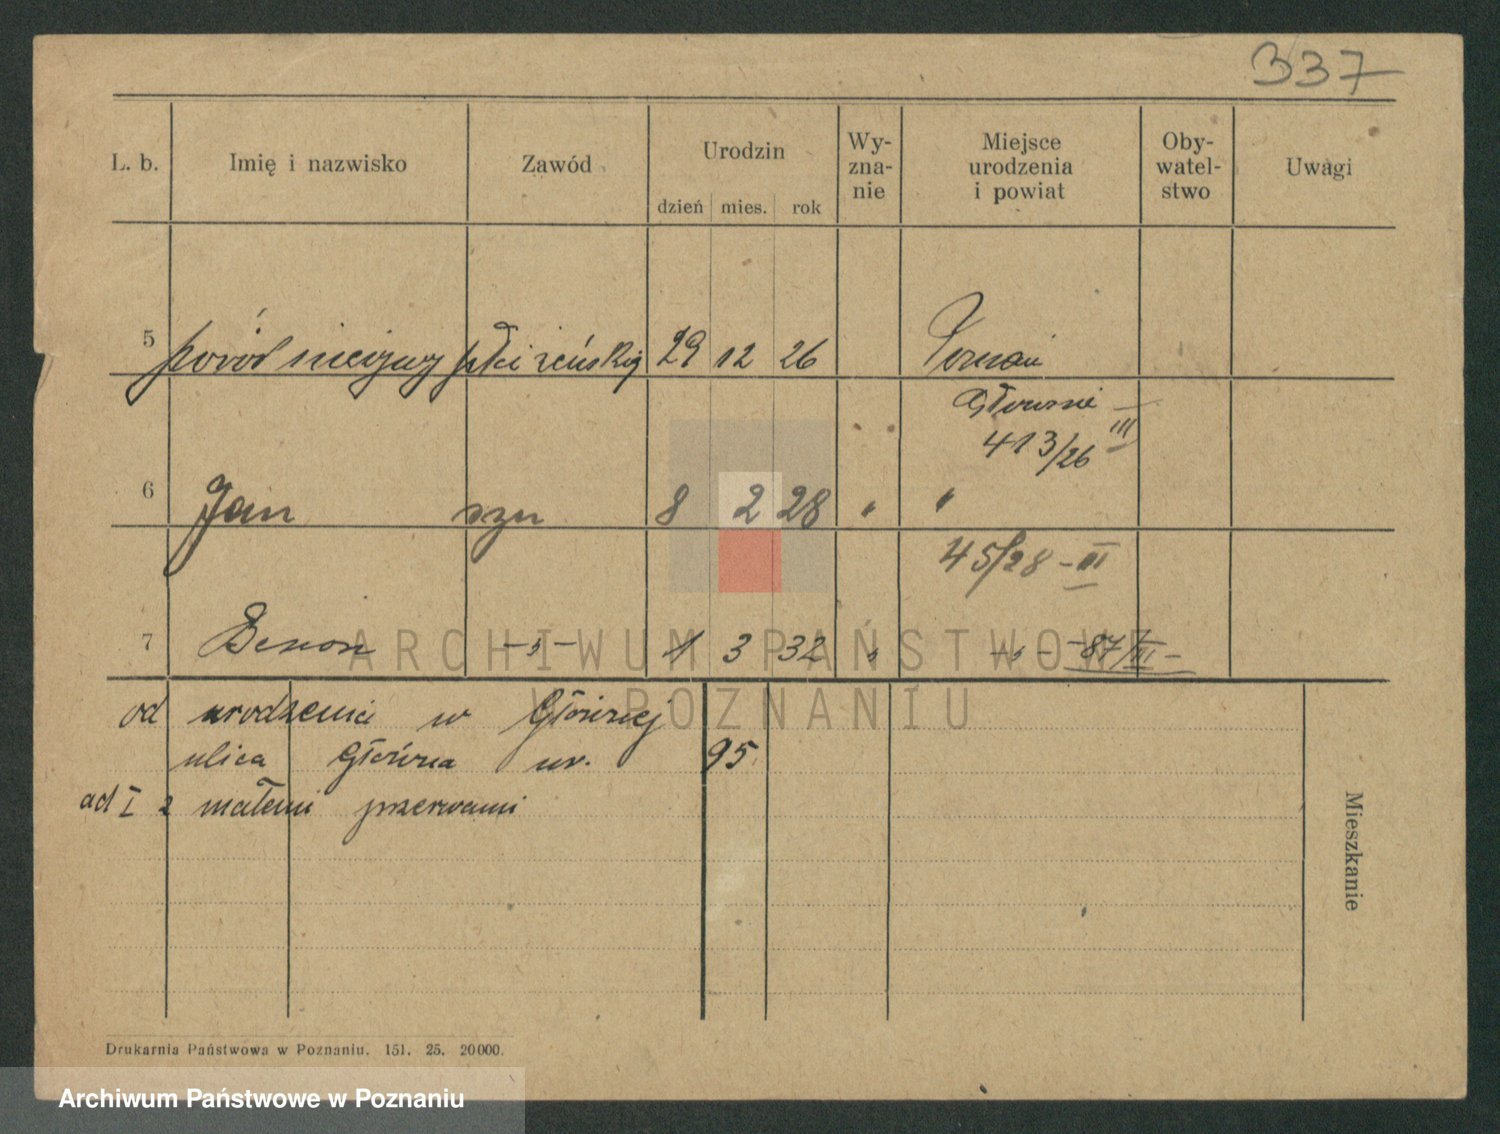 337
L. b. Imię i nazwisko Zawód Urodzin Wy-
zna-
nie Miejsce
urodzenia
i powiat Oby-
watel-
stwo Uwagi
dzień mies. rok
5 poród nieżywy płci żeńskiej 29 12 26 Poznań
Główna
413/26 III
6 Jan syn 8 2 28 " "
45/28 - III
7 Benon -"- 1 3 32 " -"- -87/III-
od urodzenia w Głównej
ulica Główna nr. 95
ad I z małemi przerwami
Mieszkanie
Drukarnia Państwowa w Poznaniu. 151. 25. 20000.
ARCHIWUM PAŃSTWOWE
W POZNANIU
Archiwum Państwowe w Poznaniu